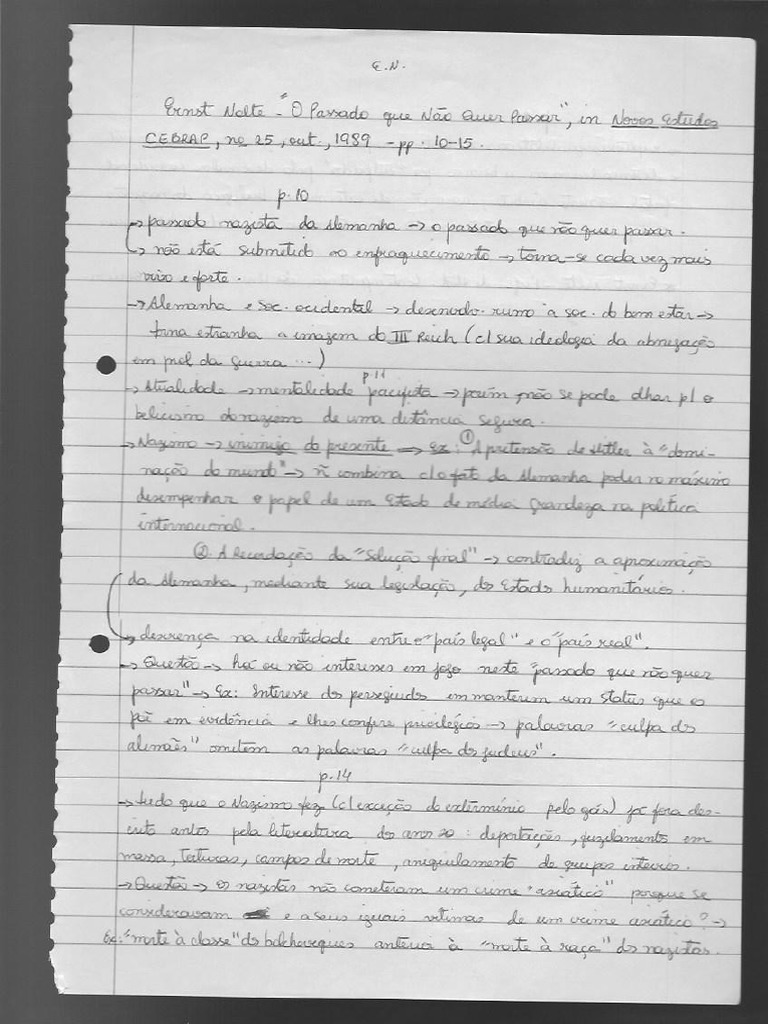 E.N.
Ernst Nolte - "O Passado que Não Quer Passar", in Novos Estudos
CEBRAP, nº 25, out., 1989 - pp. 10-15.
p. 10
→ passado nazista da Alemanha → o passado que não quer passar.
→ não está submetido ao enfraquecimento → torna-se cada vez mais
vivo e forte.
→ Alemanha e soc. ocidental → desenvolv. rumo à soc. do bem estar →
torna estranha a imagem do III Reich (c/ sua ideologia da abnegação
em prol da guerra ...)
p. 11
→ Atualidade → mentalidade pacifista → porém, não se pode olhar p/ o
belicismo do nazismo de uma distância segura.
→ Nazismo → inimigo do presente → Ex: ① A pretensão de Hitler à "domi-
nação do mundo" → ñ combina c/ o fato da Alemanha poder no máximo
desempenhar o papel de um Estado de média grandeza na política
internacional.
② A recordação da "solução final" → contradiz a aproximação
da Alemanha, mediante sua legislação, dos Estados humanitários.
→ descrença na identidade entre o "país legal" e o "país real".
→ Questão → há ou não interesses em jogo neste "passado que não quer
passar" → Ex: Interesse dos perseguidos em manterem um status que os
põe em evidência e lhes confere privilégios → palavras "culpa dos
alemães" omitem as palavras "culpa dos judeus".
p. 14
→ tudo que o Nazismo fez (c/ exceção do extermínio pelo gás) já fora des-
crito antes pela literatura dos anos 20: deportações, fuzilamentos em
massa, torturas, campos de morte, aniquilamento de grupos inteiros.
→ Questão → os nazistas não cometeram um crime "asiático" porque se
consideravam e a seus iguais vítimas de um crime asiático? →
Ex: "morte à classe" dos bolcheviques anterior à "morte à raça" dos nazistas.